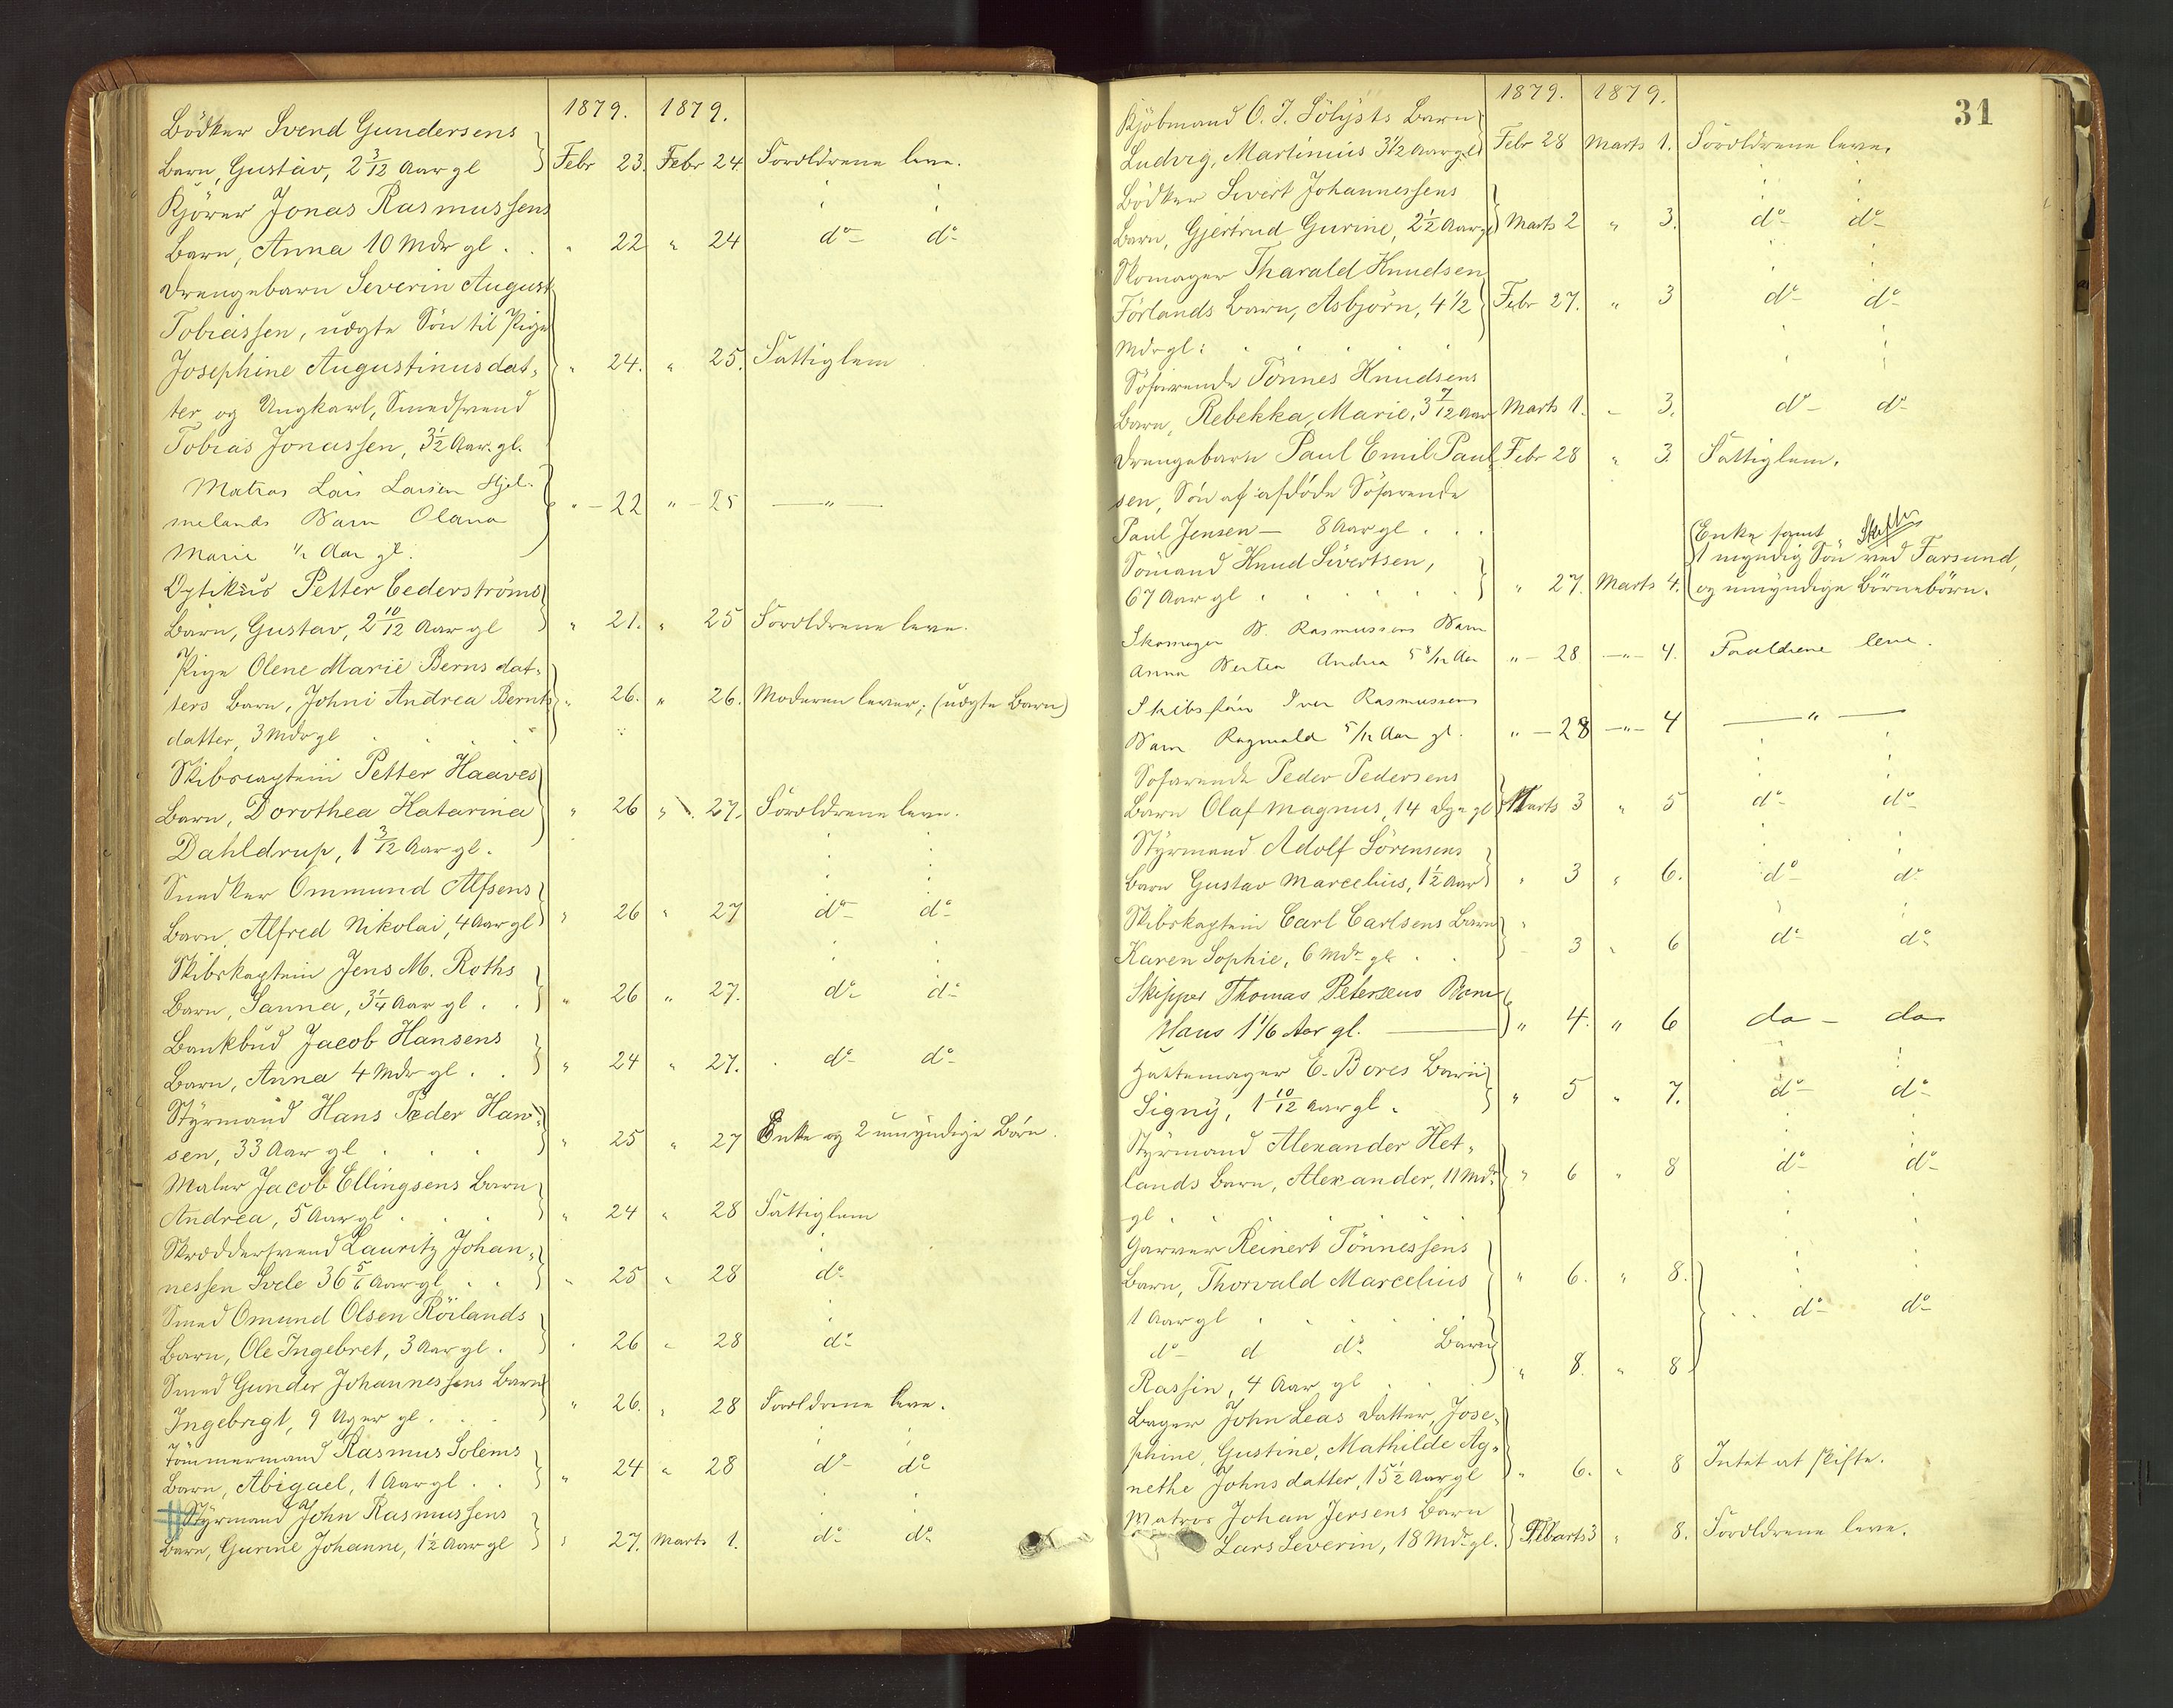 1879. 1879.
Bödker Svend Gundersens
Barn, Gustav, 2 3/12 Aar gl } Febr 23. Febr 24. Foroldrene leve.
Kjörer Jonas Rasmussens
Barn, Anna 10 Mdr gl . . " 22 " 24 do do
Drengebarn Severin August
Tobiassen, uægte Sön til Pige
Josephine Augustinusdat- " 24. " 25. Fattiglem
ter og Ungkarl, Smedsvend
Tobias Jonassen, 3 1/2 Aar. gl.
Matros Lars Larsen Hjel-
melands Barn Olana " - 22 " - 25 — " —
Marie 1/2 Aar gl.
Optikus Petter Cederströms
Barn, Gustav, 2 10/12 Aar gl } " 21. " 25 Foroldrene leve.
Pige Olene Marie Berns dat-
ters Barn, Johni Andrea Bernts } " 26. " 26. Moderen lever; (uægte Barn)
datter, 3 Mdr gl . . .
Skibscaptein Petter Haaves
Barn, Dorothea Katarina } " 26 " 27. Foroldrene leve.
Dahldrup, 1 3/12 Aar gl.
Snedker Ommund Alfsens
Barn, Alfred Nikolai, 4 Aar gl } " 26 " 27 do do
Skibskaptein Jens M. Roths
Barn, Sanna, 3 1/4 Aar gl . . } " 26 " 27. do do
Bankbud Jacob Hansens
Barn, Anna 4 Mdr gl . . } " 24 " 27. do do
Styrmand Hans Peder Han-
sen, 33 Aar gl . . . } " 25 " 27 Enke og 2 umyndige Börn.
Maler Jacob Ellingsens Barn
Andrea, 5 Aar gl . . . } " 24 " 28 Fattiglem
Skræddersvend Lauritz Johan-
nessen Svele 36 5/6 Aar gl . . } " 25 " 28 do
Smed Omund Olsen Röilands
Barn, Ole Ingebret, 3 Aar gl . } " 26 " 28 do
Smed Gunder Johannessens Barn
Ingebrigt, 9 Uger gl . . . } " 26. " 28 Foroldrene leve.
Tömmermand Rasmus Solems
Barn, Abigael, 1 Aar gl . . } " 24 " 28 do do
Styrmand John Rasmussens
Barn, Gurine Johanne, 1 1/2 Aar gl } " 27. Marts 1. do do
31
1879. 1879.
Kjöbmand O. J. Sölysts Barn
Ludvig, Martinius 3 1/2 Aar gl } Febr 28 Marts 1. Foroldrene leve.
Bödker Sivert Johannessens
Barn, Gjertrud Gurine, 2 1/2 Aar gl } Marts 2 " 3. do do
Skomager Tharald Knudsen
Förlands Barn, Asbjörn, 4 1/2 } Febr 27. " 3 do do
Mdr gl: . . . .
Söfarende Tönnes Knudsens
Barn, Rebekka, Marie, 3 7/12 Aar Marts 1. " 3. do do
Drengebarn Paul Emil Paul- Febr 28 " 3. Fattiglem.
sen, Sön af afdöde Söfarende
Paul Jensen — 8 Aar gl . . .
Sömand Knud Sivertsen, Enke samt
1 myndig Sön ved Farsund,
67 Aar gl . . . . . } " 27. Marts 4. og umyndige Börnebörn.
Skomager B. Rasmussens Barn
Anna Bertea Andrea 5 8/12 Aar " - 28 — " — 4. Forældrene leve.
Iver Rasmussens
Barn Ragnvald 5/12 Aar gl. " - 28 — " — 4 — " —
Söfarende Peder Pedersens
Barn Olaf Magnus, 14 Dge gl } Marts 3 " 5 do do
Styrmand Adolf Sörensens
Barn Gustav Marcelius, 1 1/2 Aar } " 3 " 6. do do
Skibskaptein Carl Carlsens Barn
Karen Sophie, 6 Mdr gl . . } " 3 " 6 do do
Skipper Thomas Petersens Barn
Hans 1 1/6 Aar gl. — } " 4. " 6 do — do
Hattemager E. Bores Barn
Signy, 1 10/12 Aar gl. } " 5 " 7. do do
Styrmand Alexander Het-
lands Barn, Alexander, 11 Mdr. } " 6 " 8 do do
gl . . . . .
Garver Reinert Tönnessens
Barn, Thorvald Marcelius } " 6. " 8. }
1 Aar gl . . . . . do do
do d do Barn
Rassin, 4 Aar gl . . } " 8. " 8
Bager John Leas Datter, Jose-
phine, Gustine, Mathilde Ag-
nethe Johnsdatter, 15 1/2 Aar gl } " 6. " 8 Intet at skifte.
Matros Johan Jensens Barn
Lars Severin, 18 Mdr gl. } Marts 3 " 8. Foroldrene leve.